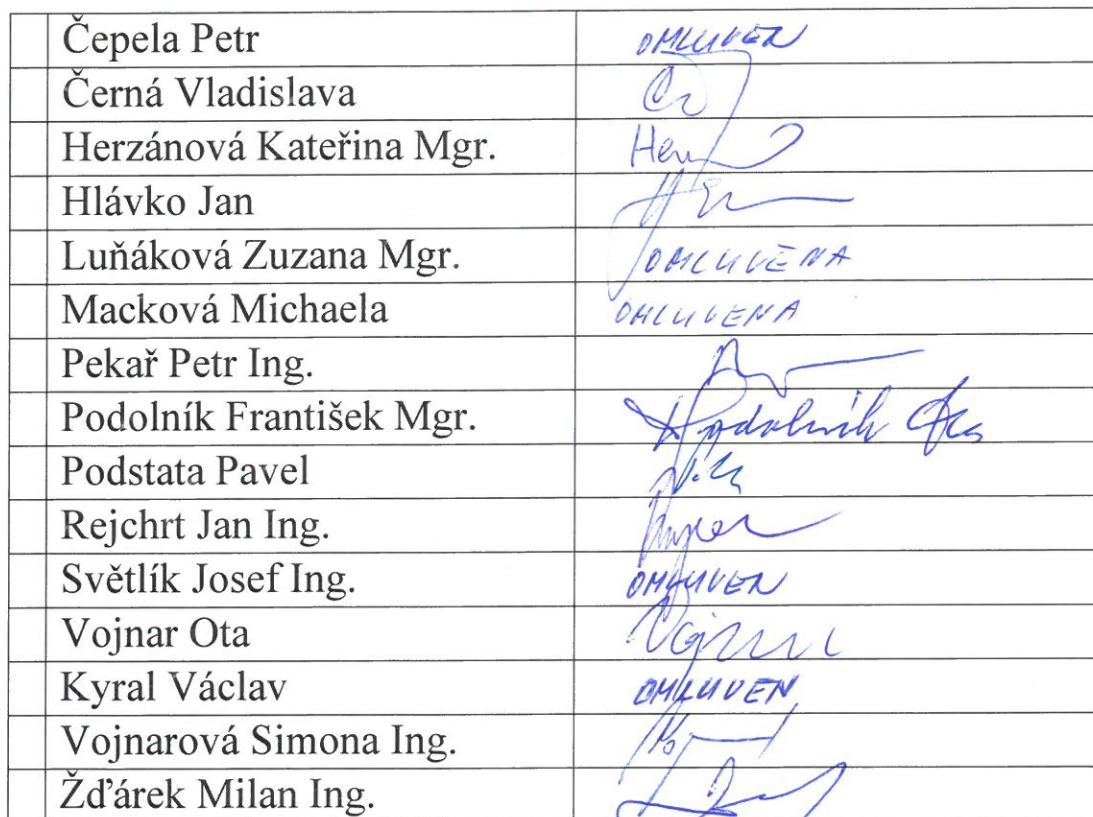 Čepela Petr OMLUVEN
Černá Vladislava
Herzánová Kateřina Mgr.
Hlávko Jan
Luňáková Zuzana Mgr. OMLUVENA
Macková Michaela OMLUVENA
Pekař Petr Ing.
Podolník František Mgr. Podolník
Podstata Pavel
Rejchrt Jan Ing.
Světlík Josef Ing. OMLUVEN
Vojnar Ota
Kyral Václav OMLUVEN
Vojnarová Simona Ing.
Žďárek Milan Ing.